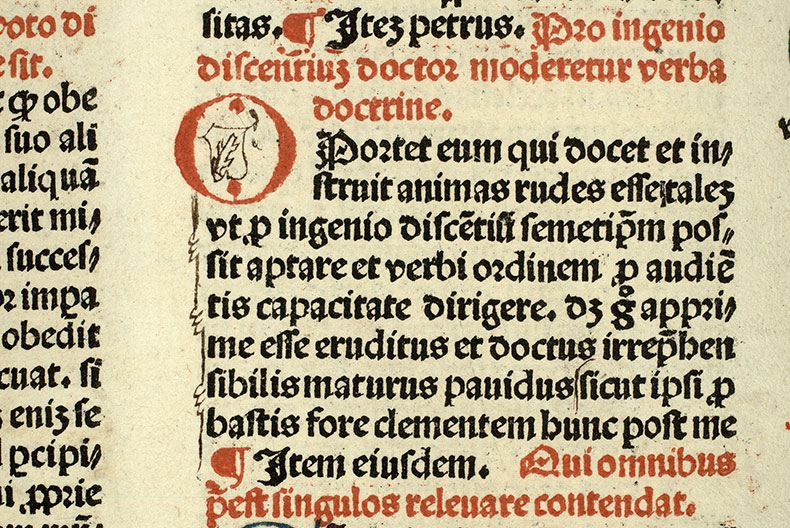 voto di
e sit.
ꝙ obe
suo ali
aliquā
erit mi⸗
succes⸗
or impa
obedit
cuat. si
eniꝫ se
ꝑcipi⸗
ui ꝓprie
sitas. ¶ Iteꝫ petrus. Pro ingenio
discen̄tiuꝫ doctor moderetur verba
doctrine.
OPortet eum qui docet et in⸗
struit animas rudes esse taleꝫ
vt ꝓ ingenio discētiū semetip̄m pos⸗
sit aptare et verbi ordinem ꝓ audiē
tis capacitate dirigere. dꝫ g̊ appri⸗
me esse eruditus et doctus irrep̄hen
sibilis maturus pauidus sicut ipsi ꝓ
bastis fore clementem hunc post me
¶ Item eiusdem. Qui omnibus
p̄est singulos releuare contendat.